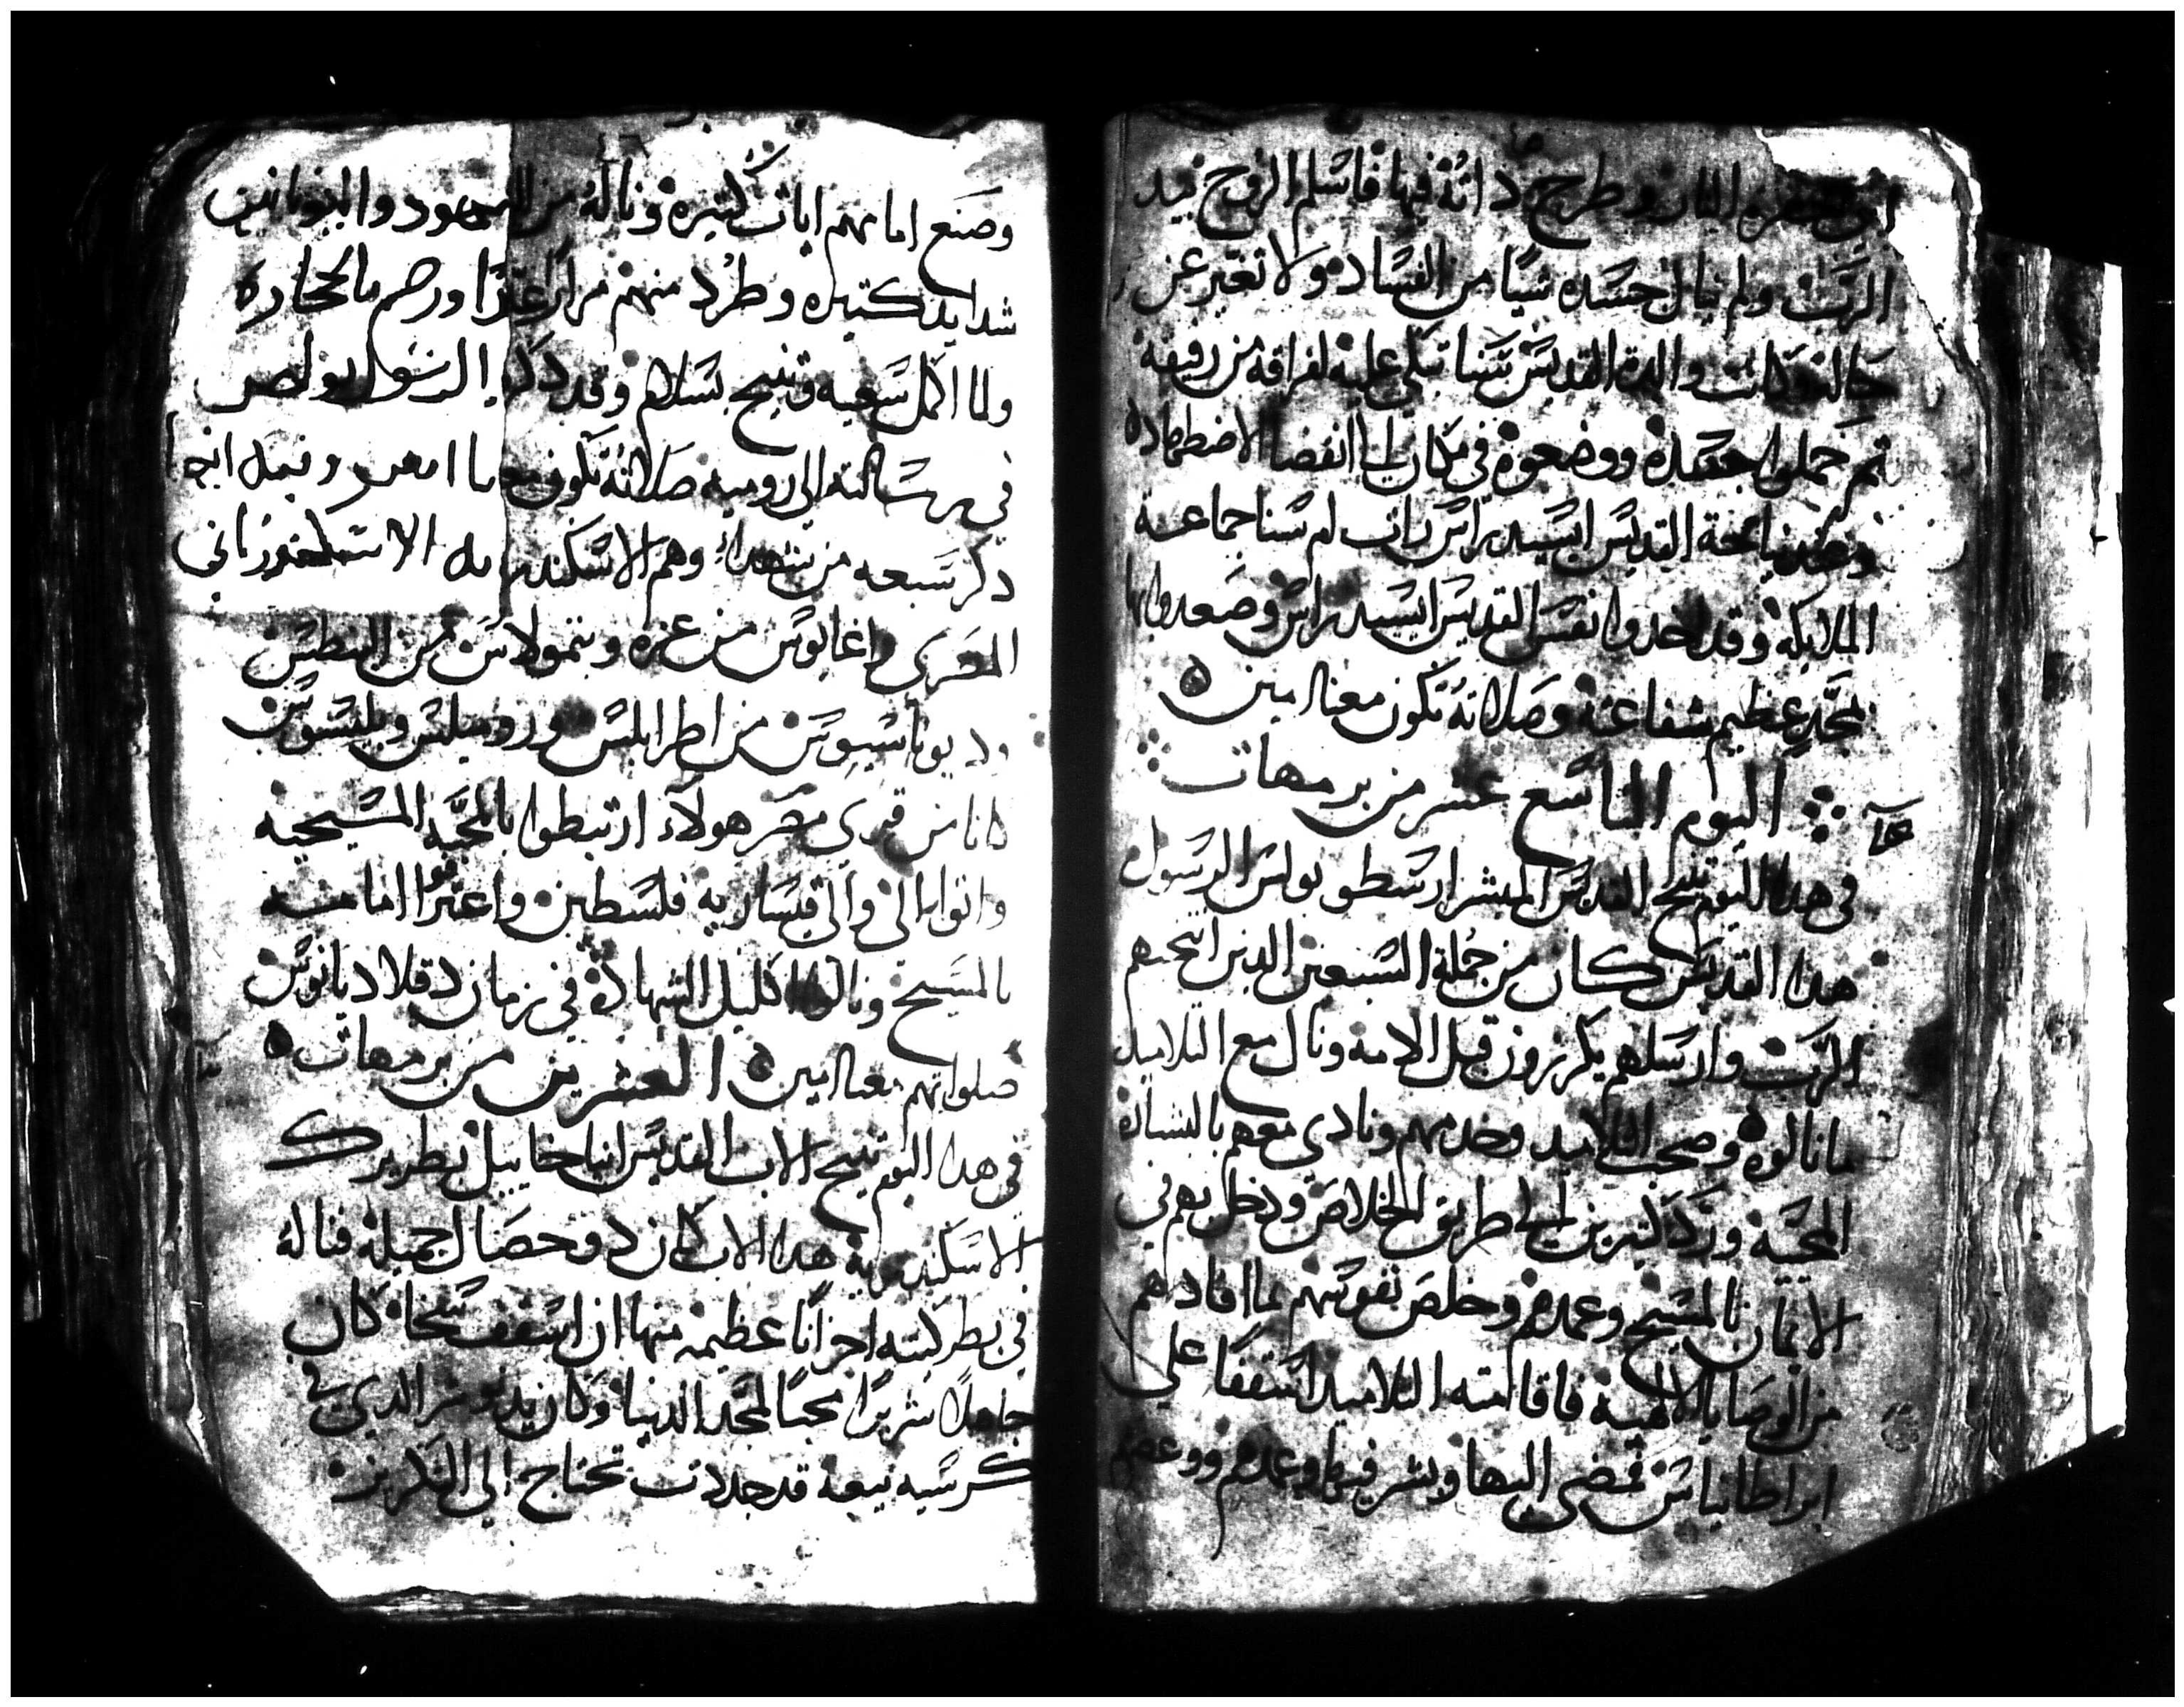 الى حفرة النار وطرح ذاته فيها فاسلم الروح بيد
الرب ولم ينال جسده شيا من الفساد ولا تغير عن
حاله وكانت والدة القديس تبكي عليه لفراقه من رفيقه
ثم حملوا جسده ووضعوه في مكان الى انقضا الاضطهاد
وعند نياحة القديس ايسيدراس رات ام سنا جماعة
الملايكة وقد اخدوا نفس القديس ايسيدراس وصعدوا بها
بمجد عظيم شفاعته وصلاته تكون معنا امين
اليوم التاسع عشر من برمهات
في هدا اليوم تنيح القديس المبشر ارسطوبولس الرسول
هدا القديس كان من جملة السبعين الدين انتخبهم
الرب وارسلهم يكرزون قبل الامه ونال مع التلاميد
ما نالوه وصحب التلاميد وخدمهم ونادى معهم بالبشارة
المحيية ورد كتيرين الى طريق الخلاص ودخل بهم في
الايمان بالمسيح وعمدهم وخلص نفوسهم بما افادهم
من الوصايا الالهية فاقامته التلاميد اسقفا على
ابراطانياس فمضى اليها وبشر فيها وعمدهم ووعضهم
وصنع امامهم ايات كتيره وناله من اليهود واليونانين
شدايد كتيره وطرد منهم مرارا ورجم بالحجاره
ولما اكمل سعيه وتنيح بسلام وقد دكره الرسول بولص
في رسالته الى روميه صلاته تكون معنا امين وفيه ايضا
دكر سبعه من شهداء وهم الاسكندر الاسكندراني
المصري واغابوس من غزه وتيمولاس من البنطس
وديوناسيوس من اطرابلس وروميلس وبليسوس
من قرى مصر هولاء ارتبطوا بالمحبة المسيحيه
واتوا الى والي قيساريه فلسطين واعترفوا امامه
بالمسيح ونالوا اكليل الشهادة في زمان دقلاديانوس
صلواتهم معنا امين العشرين من برمهات
في هدا اليوم تنيح الاب القديس انبا خاييل بطريرك
الاسكندرية هدا الاب كان دو خصال جميلة فناله
في بطركيته احزانا عظيمه منها ان اسقف سخا كان
جاهلا شريرا محبا لمجد الدنيا وكان الدي في
كرسيه بيعة قد جددت تحتاج الى التكريز